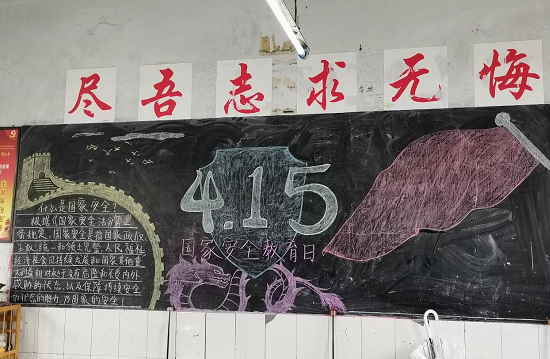 尽吾志求无悔
4.15
国家安全教育日
什么是国家安全?
根据《国家安全法》第二
条规定,国家安全是指国家政权、
主权、统一和领土完整、人民福祉、
经济社会可持续发展和国家其他重
大利益相对处于没有危险和不受内外
威胁的状态,以及保障持续安全
状态的能力,乃国家的安全!